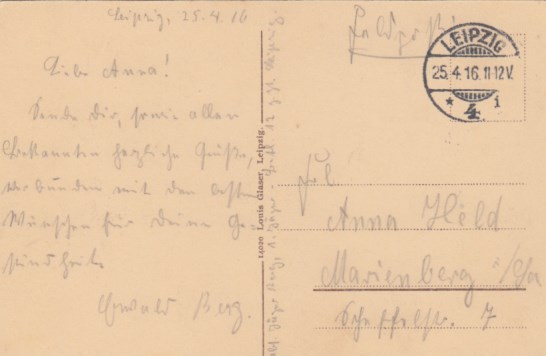 Leipzig, 25.4.16
Liebe Anna!
Sende Dir, sowie allen
Bekannten herzliche Grüße,
verbunden mit den besten
Wünschen für Deine Ge-
sundheit.
Ewald Berg.
14020 Louis Glaser, Leipzig.
Feldpost!
LEIPZIG
25.4.16.11-12V.
* 4 i
Frl.
Anna Held
Marienberg i/Sa
7